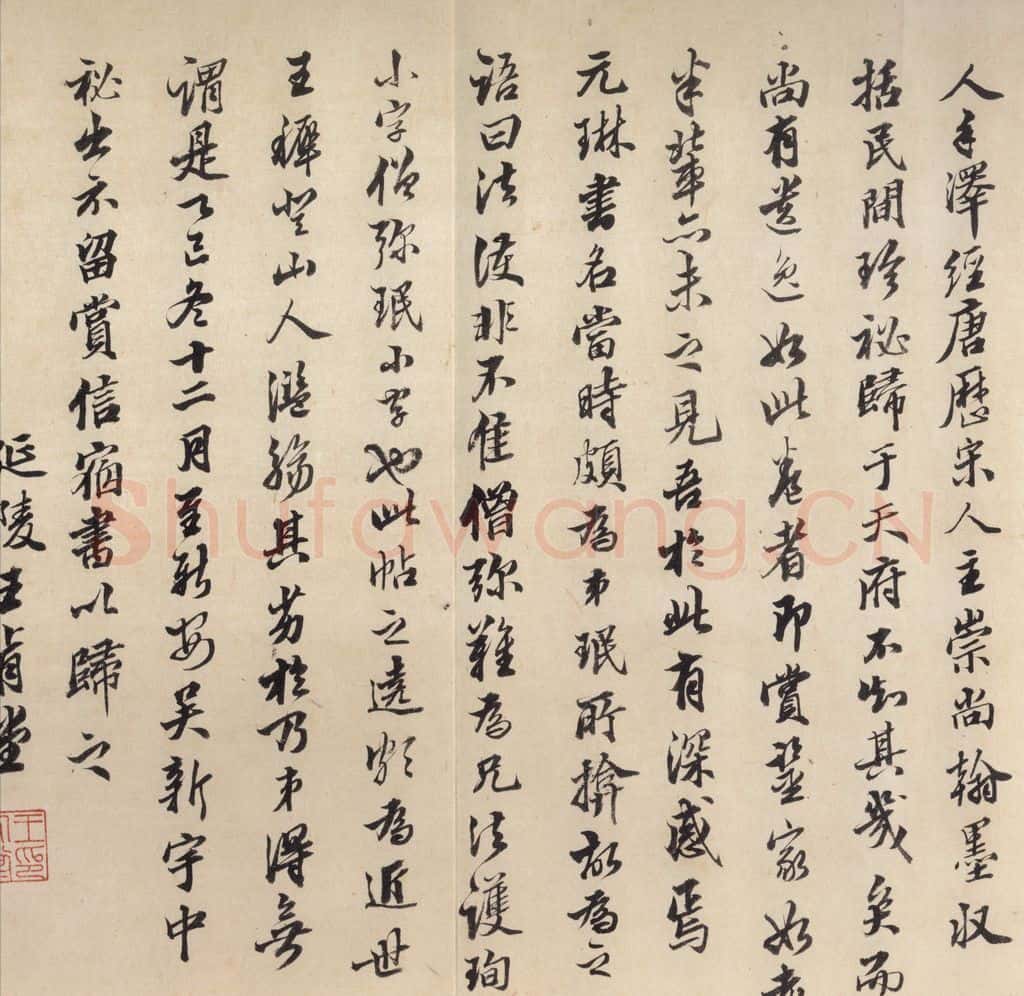 人手澤經唐歷宋人主崇尚翰墨収
括民間珍祕歸于天府不知其幾矣而
尚有遺逸如此卷者即賞鑒家如老
米輩亦未之見吾於此有深感焉
元琳書名當時頗為弟珉所揜故為之
語曰法護非不佳僧彌難為兄法護珣
小字僧彌珉小字也此帖之遒勁為近世
王穉登山人濫觴其劣於乃弟得無
謂是乙巳冬十二月至新安吳新宇中
祕出示留賞信宿書以歸之
延陵王肯堂
Shufawang.CN